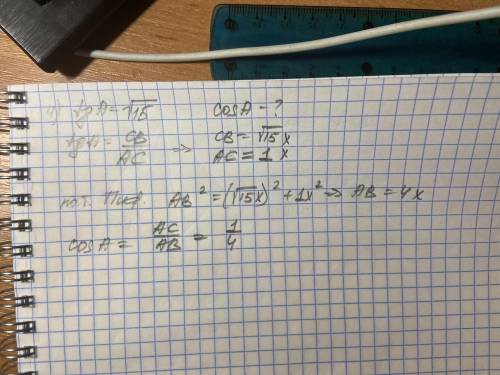 4) tg A = √15 cos A - ?
tg A = CB/AC => CB = √15 x
AC = 1 x
по т. Пиф. AB² = (√15x)² + 1x² => AB = 4x
cos A = AC/AB = 1/4